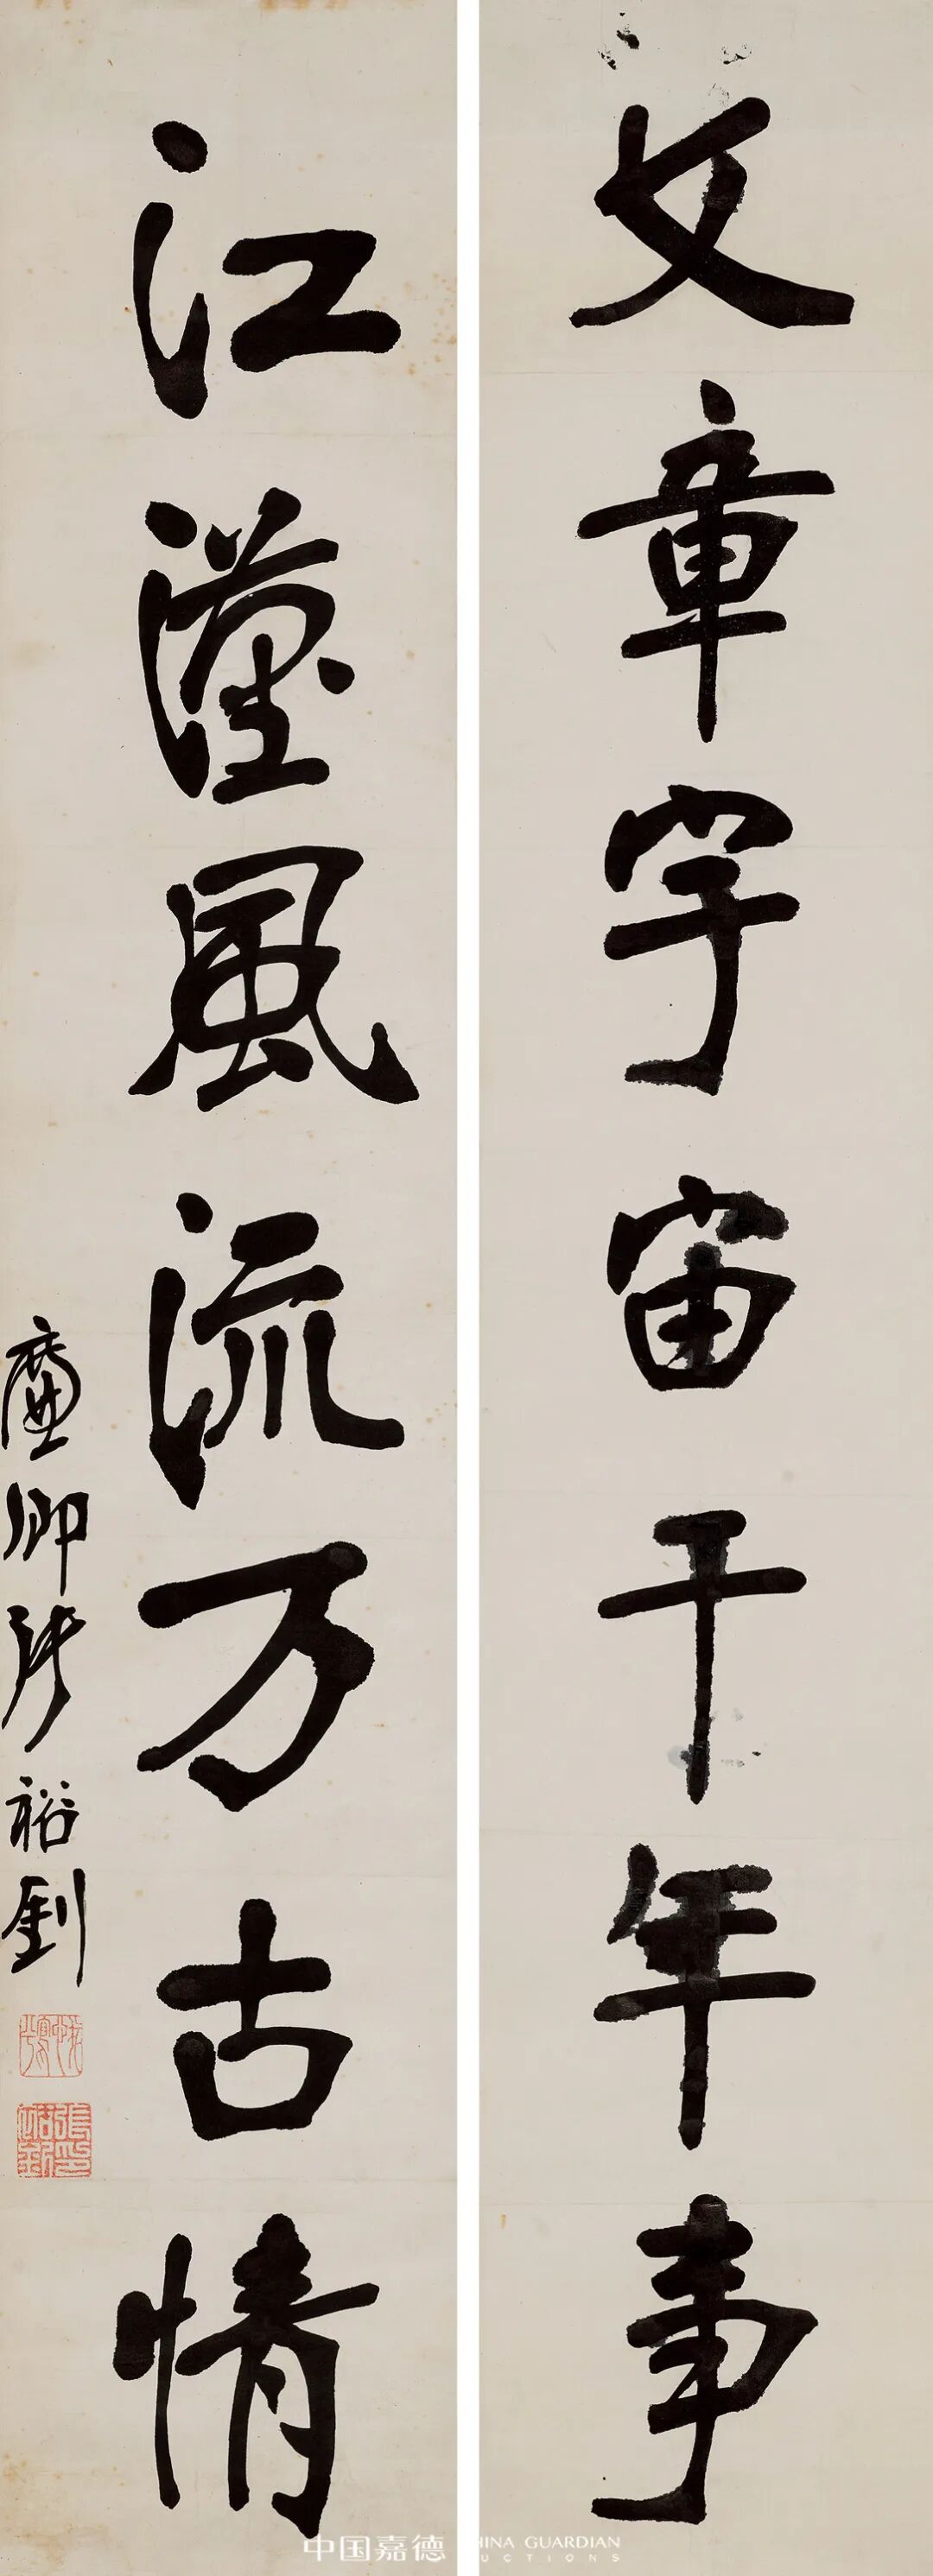 文章宇宙千年事
江漢風流万古情
廉卿張裕釗
張裕釗印
中国嘉德
HINA GUARDIAN
UCTIONS